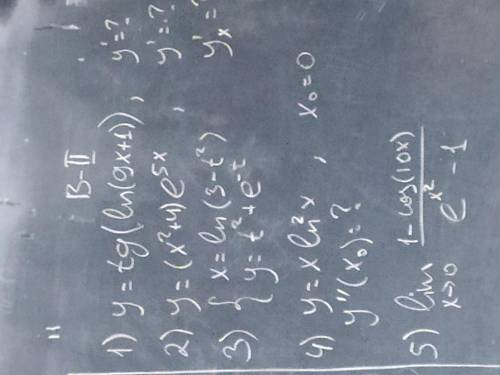 B-II
1) y = tg(ln(9x+1)), y'=?
2) y = (x²+4)e^{5x}, y'=?
3) { x = ln(3-t²) y'ₓ=?
y = t² + e^{-t}
4) y = x ln²x, x₀=0
y''(x₀)=?
5) lim_{x→0} \frac{1-cos(10x)}{e^{x²}-1}